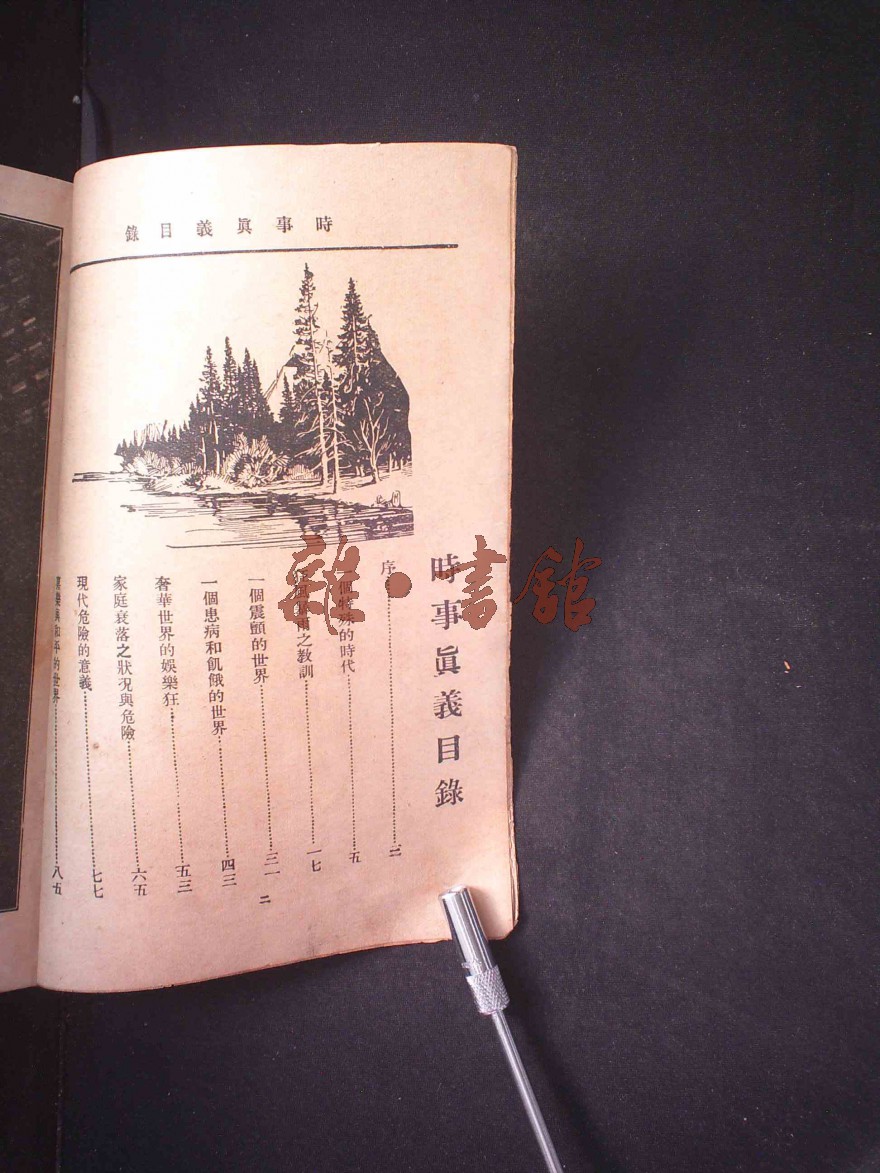 時事眞義目錄
時事眞義目錄
序 三
一個特殊的時代 五
風暴雨之教訓 一七
一個震顫的世界 三一
一個患病和飢餓的世界 四三
奢華世界的娛樂狂 五三
家庭衰落之狀况與危險 六五
現代危險的意義 七七
與和平的世界 八五
二
雜·書館